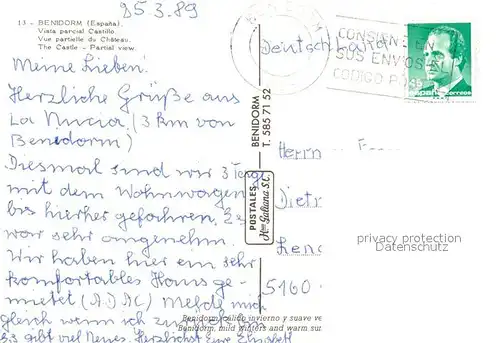 25.3.89
13 - BENIDORM (España).
Vista parcial Castillo.
Vue partielle du Château.
The Castle - Partial view.
Meine Lieben!
Herzliche Grüße aus
La Nucia (3 km von
Benidorm)
Diesmal sind wir 3 Tage
mit dem Wohnwagen
bis hierher gefahren. Es
war sehr angenehm.
Wir haben hier ein sehr
komfortables Haus ge-
mietet (ADAC) Melde mich
gleich wenn ich zurück bin
Es gibt viel Neues. Herzlichst Eure Elisabeth
POSTALES
Hnos Galiana S.L.
BENIDORM
T. 585 71 52
Deutschland
CONSIGNE EN
SUS ENVIOS EL
CODIGO POSTAL
Correos
Herrn
Dietr
5160
privacy protection
Datenschutz
Benidorm, cálido invierno y suave ve
Benidorm, mild winters and warm su